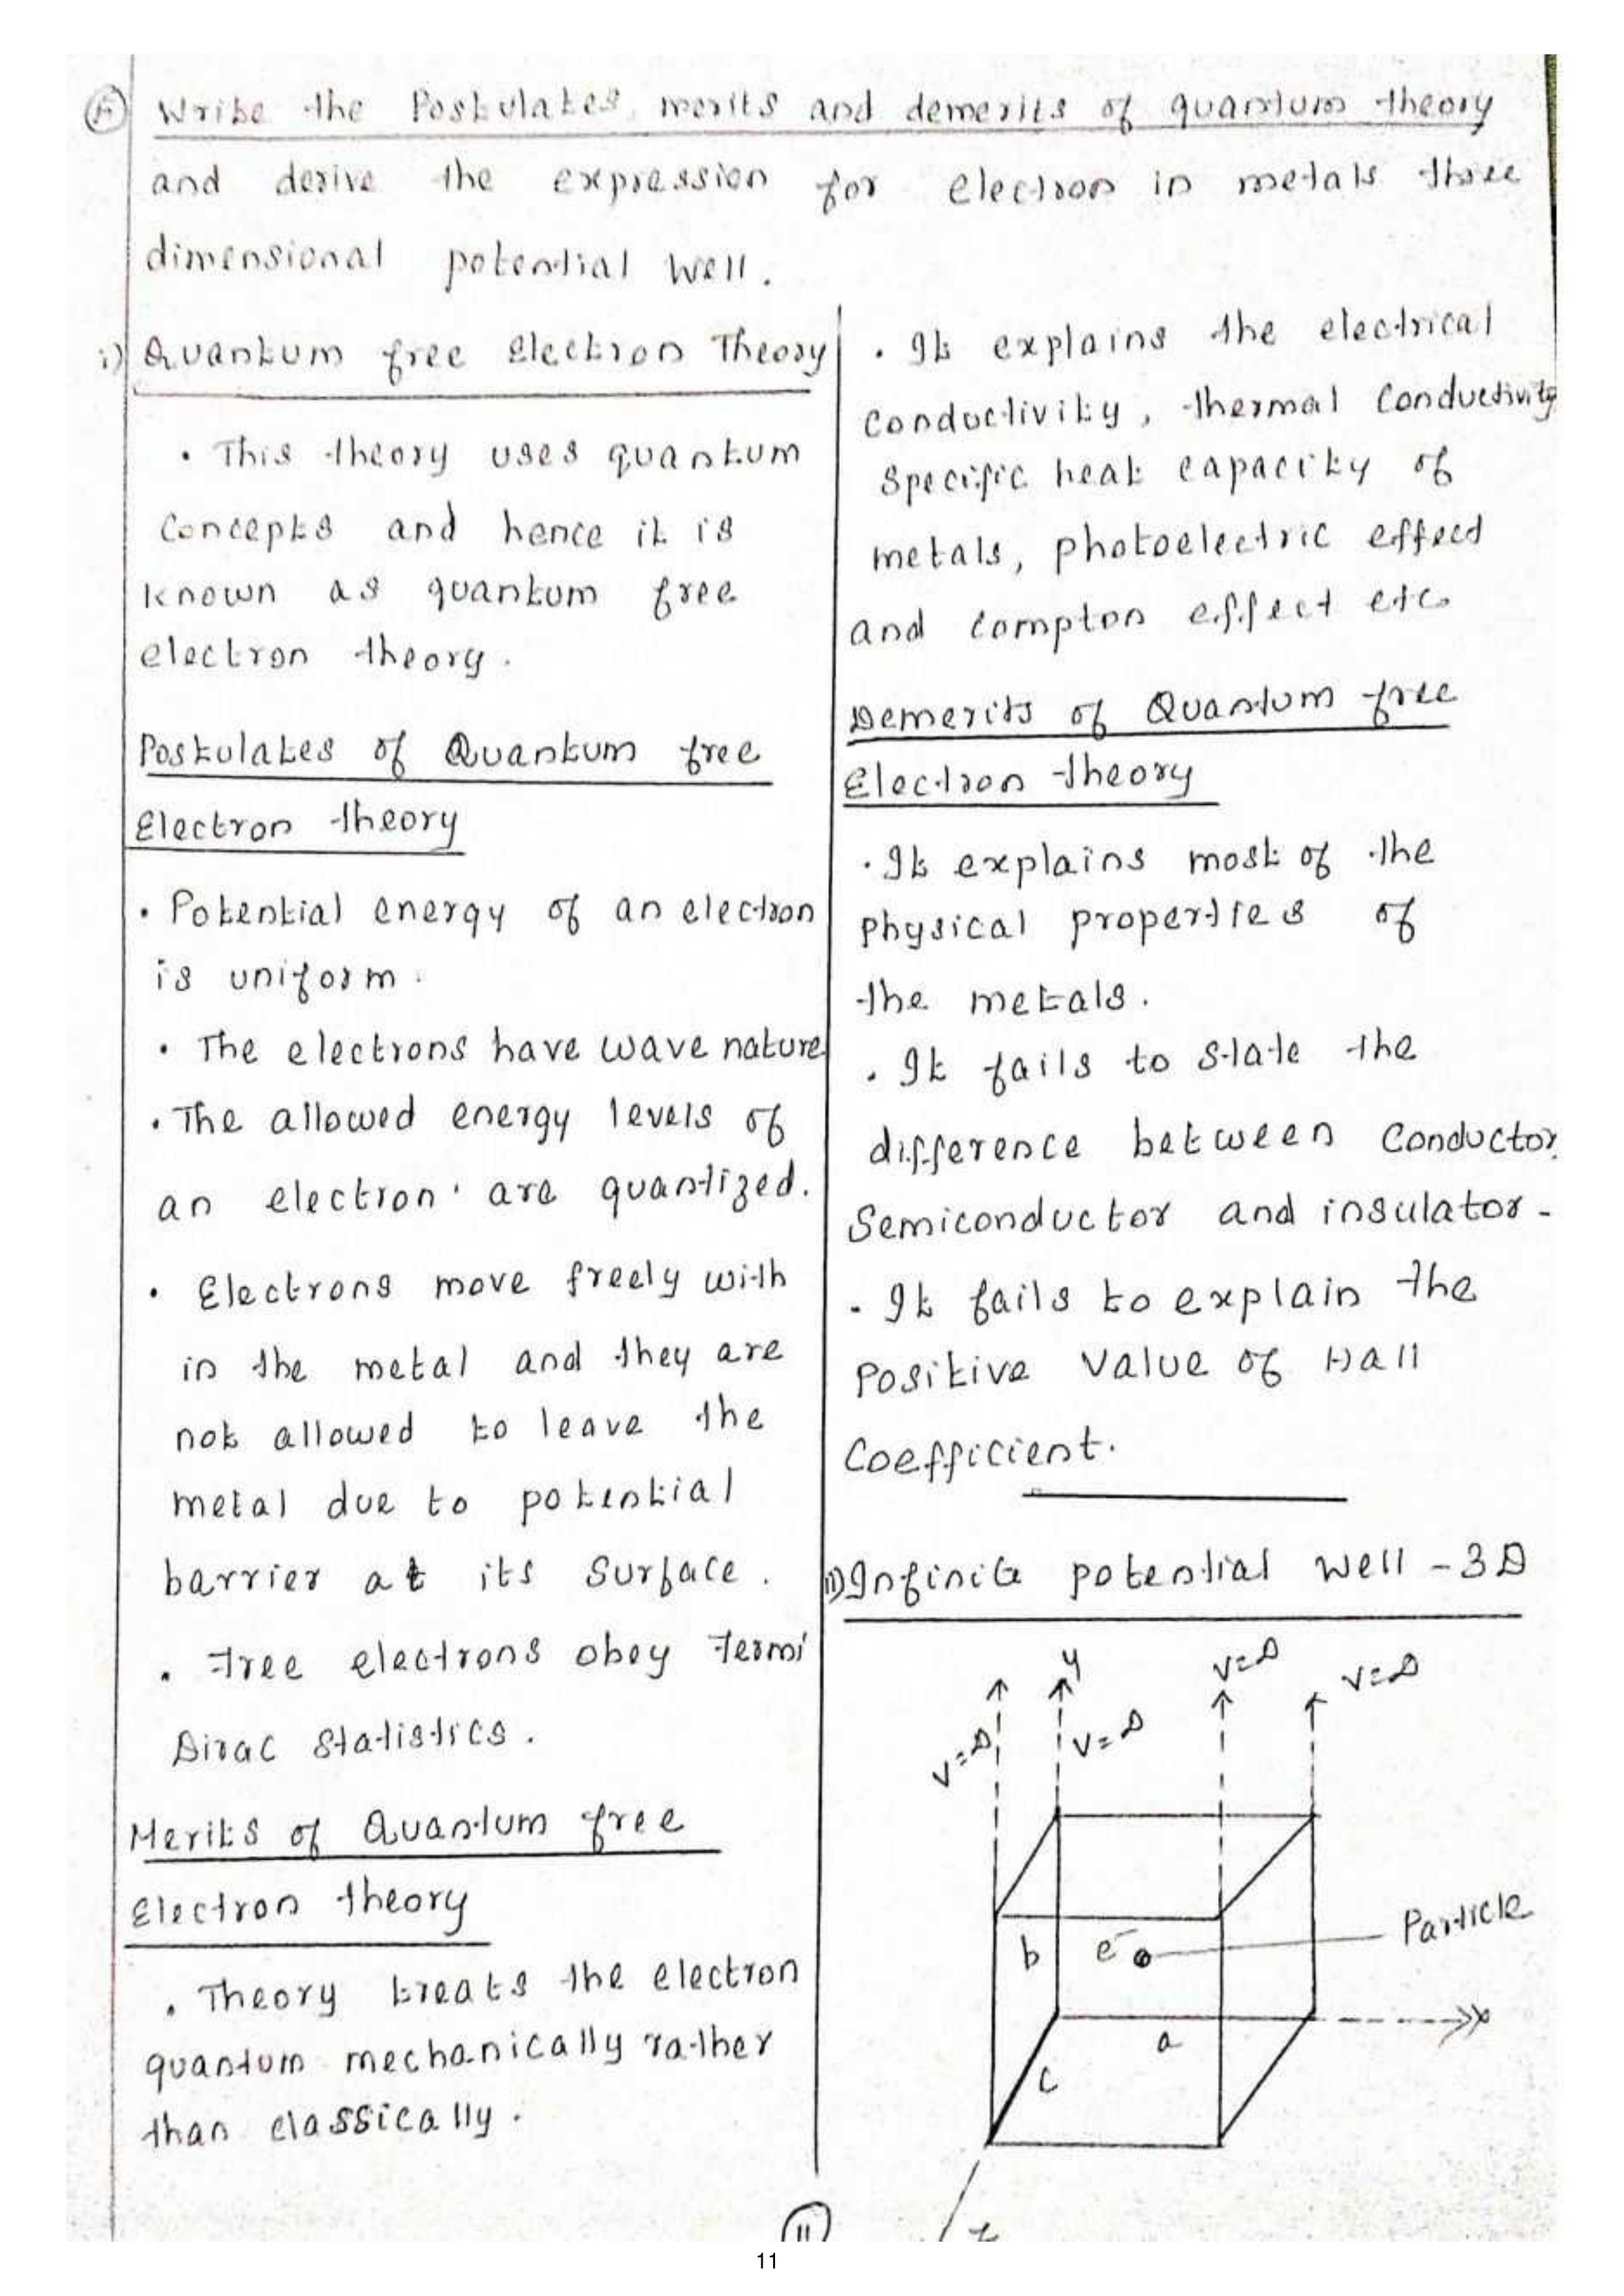 Write the Postulates, merits and demerits of quantum theory
and derive the expression for electron in metals three
dimensional potential well.
i) Quantum free Electron Theory
• This theory uses quantum
concepts and hence it is
known as quantum free
electron theory.
Postulates of Quantum free
Electron theory
• Potential energy of an electron
is uniform.
• The electrons have wave nature
• The allowed energy levels of
an electron are quantized.
• Electrons move freely with
in the metal and they are
not allowed to leave the
metal due to potential
barrier at its surface.
• Free electrons obey Fermi
Dirac Statistics.
Merits of Quantum free
Electron theory
• Theory treats the electron
quantum mechanically rather
than classically.
• It explains the electrical
conductivity, thermal conductivity
specific heat capacity of
metals, photoelectric effect
and compton effect etc.
Demerits of Quantum free
Electron theory
• It explains most of the
physical properties of
the metals.
• It fails to state the
difference between conductor
Semiconductor and insulator.
• It fails to explain the
positive value of Hall
Coefficient.
ii) Infinite potential well - 3D
y
V=∞
V=∞
V=∞
V=∞
b
e⁻
Particle
a
x
c
z
11
11